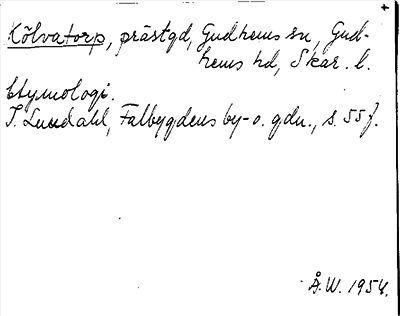 +
Kölvatorp, prästgd, Gudhems sn, Gud-
hems hd, Skar. l.
Etymologi.
I. Lundahl, Falbygdens by- o. gdn., s. 55 f.
Å.W. 1954.